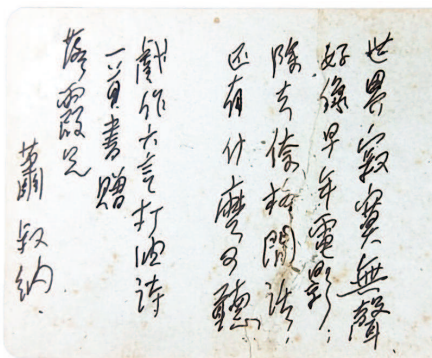 世界寂寞無聲
好像早年電影；
除去閒話，
还有什麽可聽
戲作六言打油詩
一首書贈
霞兄
蕭叔納